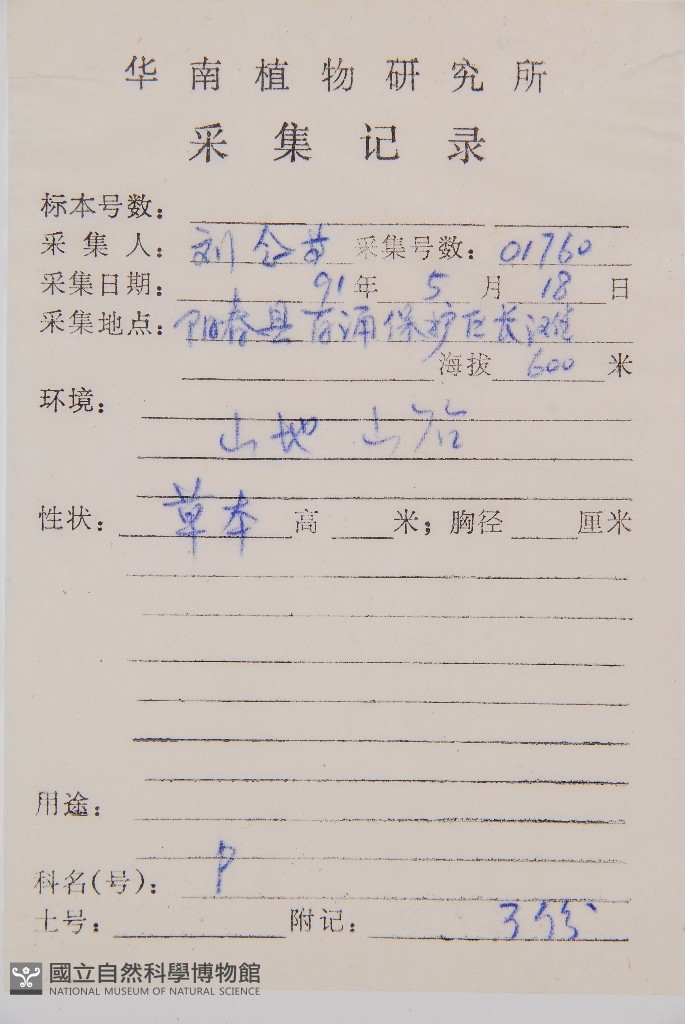 华南植物研究所
采集记录
标本号数：
采集人：刘 采集号数：01760
采集日期：91年5月18日
采集地点：阳春县百涌保护区长滩
海拔600米
环境：
山地 山谷
性状：草本 高 米；胸径 厘米
用途：
科名(号)：P
土号： 附记：3份
國立自然科學博物館
NATIONAL MUSEUM OF NATURAL SCIENCE